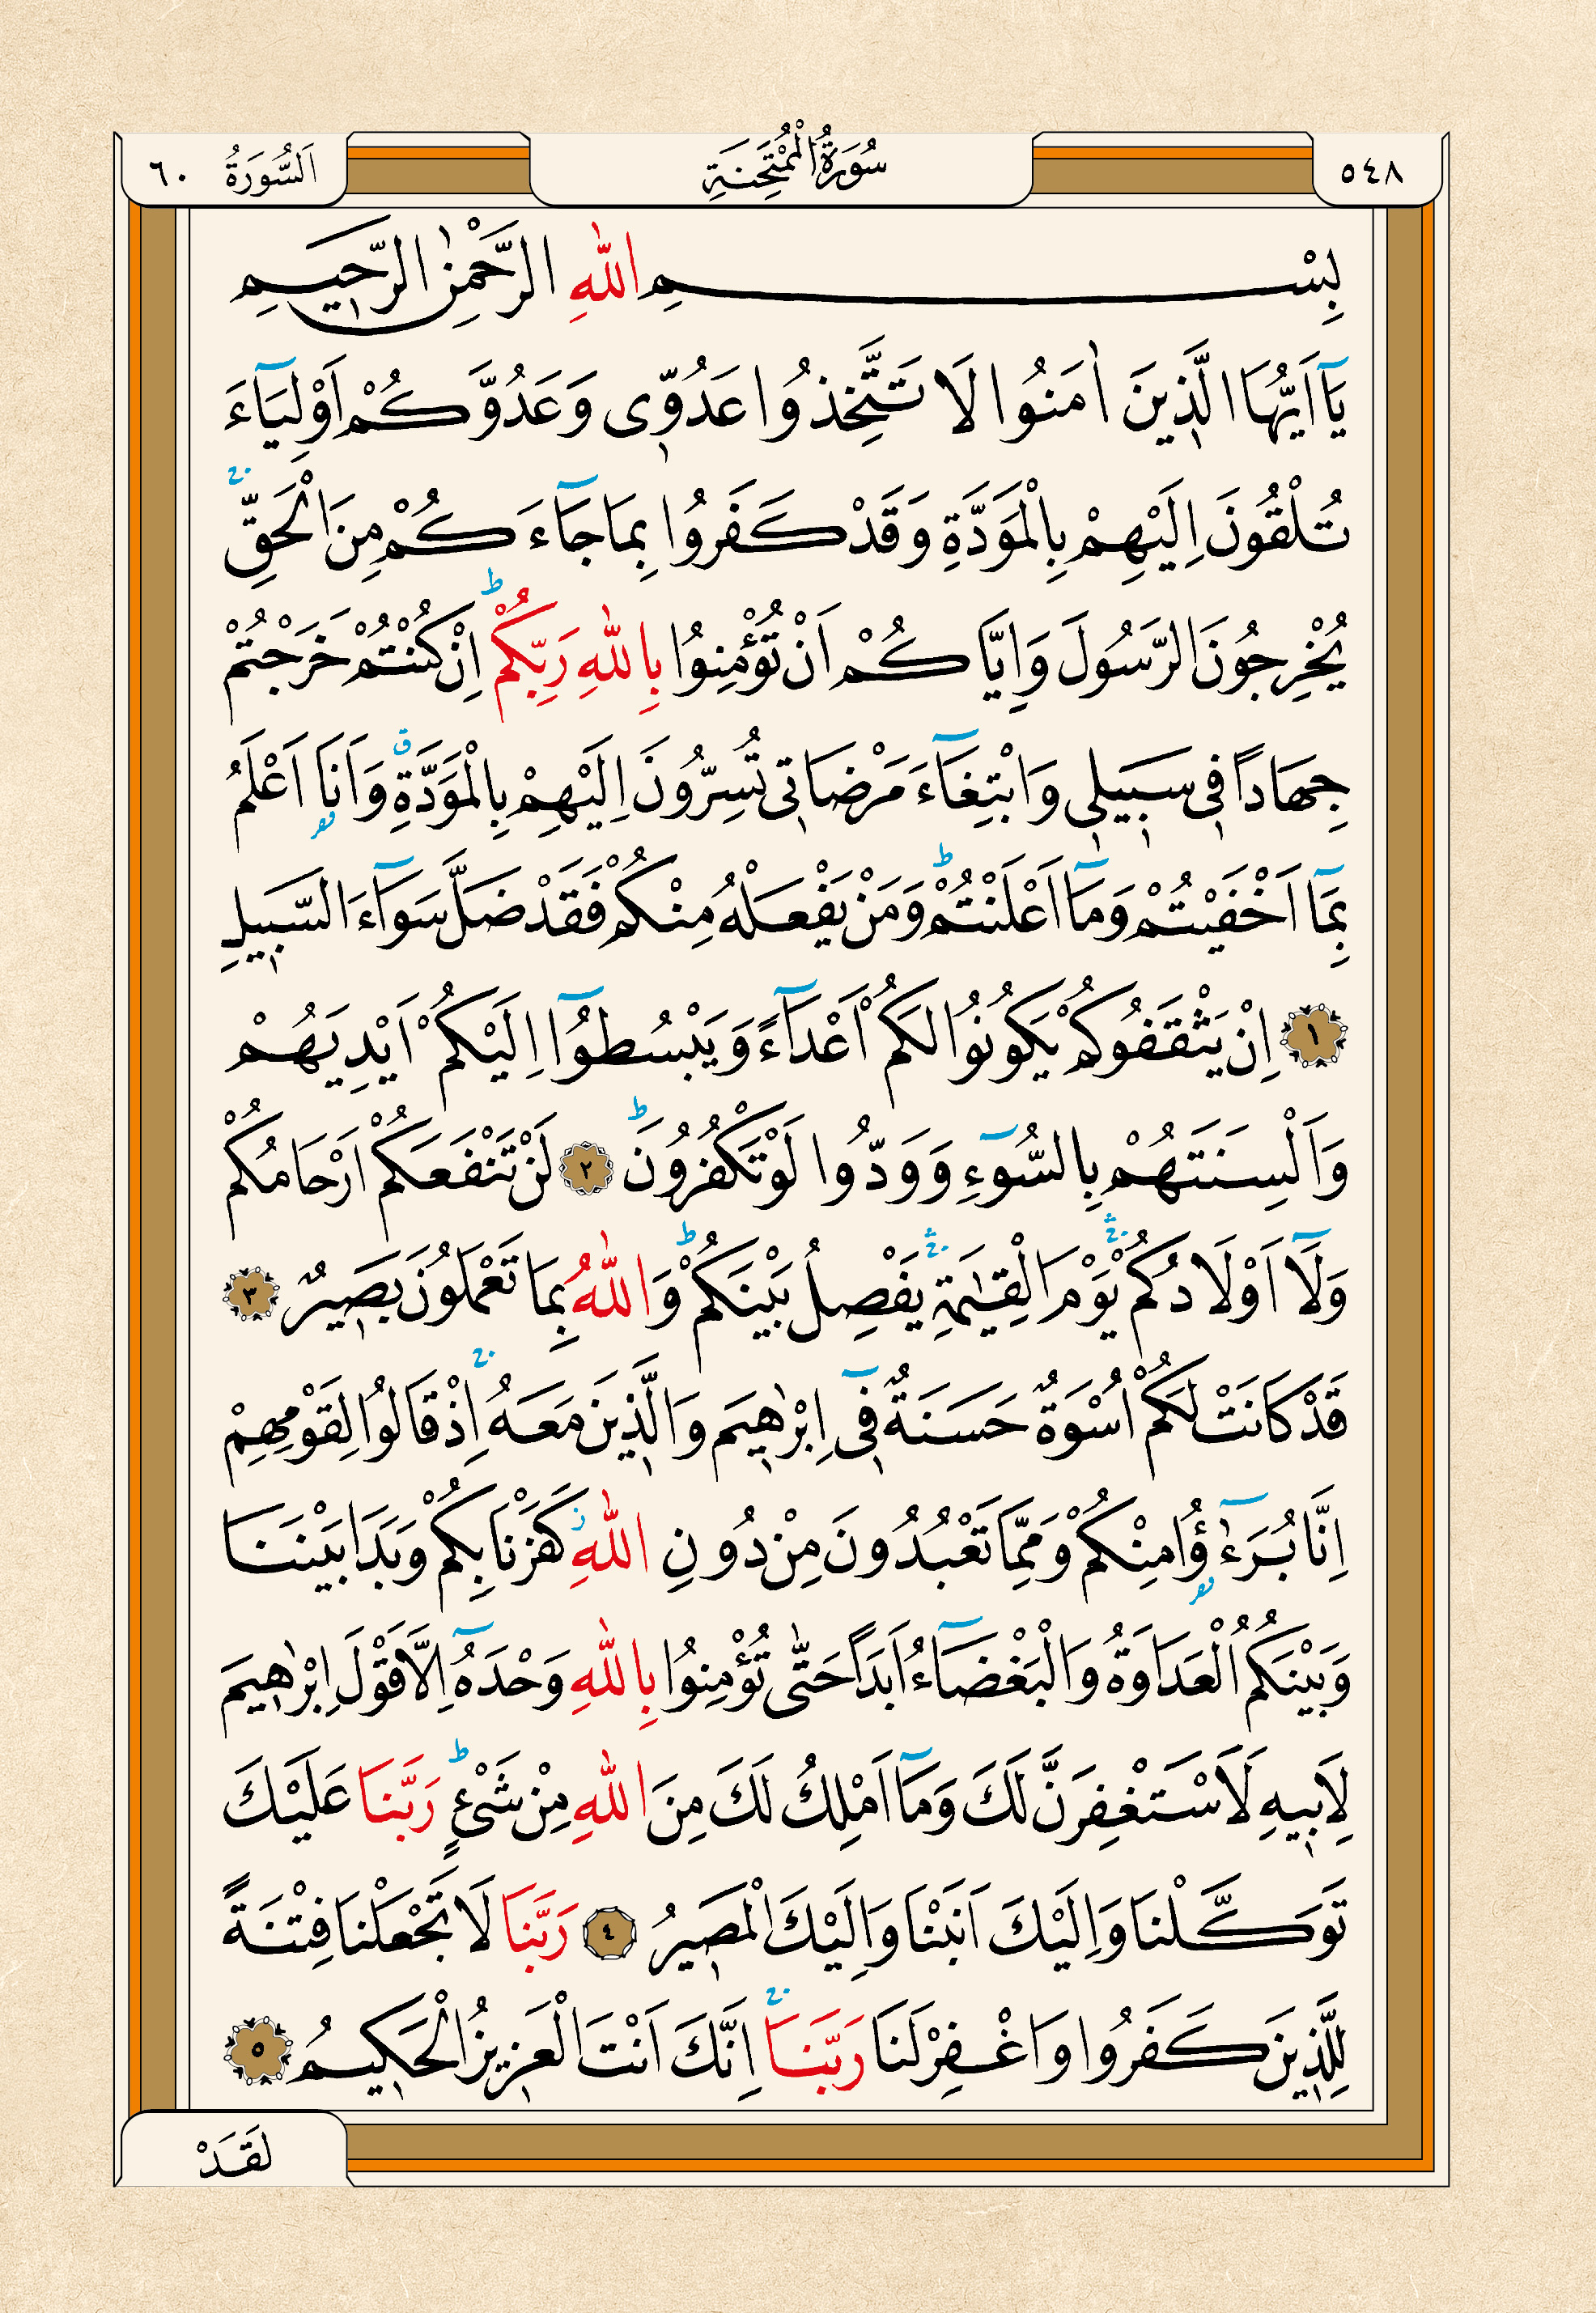 ٥٤٨ سُورَةُ الْمُمْتَحِنَةِ اَلسُّورَةُ ٦٠
بِسْمِ اللّٰهِ الرَّحْمٰنِ الرَّحٖيمِ
يَٓا اَيُّهَا الَّذٖينَ اٰمَنُوا لَا تَتَّخِذُوا عَدُوّٖى وَعَدُوَّكُمْ اَوْلِيَٓاءَ
تُلْقُونَ اِلَيْهِمْ بِالْمَوَدَّةِ وَقَدْ كَفَرُوا بِمَا جَٓاءَكُمْ مِنَ الْحَقِّۚ
يُخْرِجُونَ الرَّسُولَ وَاِيَّاكُمْ اَنْ تُؤْمِنُوا بِاللّٰهِ رَبِّكُمْؕ اِنْ كُنْتُمْ خَرَجْتُمْ
جِهَادًا فٖى سَبٖيلٖى وَابْتِغَٓاءَ مَرْضَاتٖى تُسِرُّونَ اِلَيْهِمْ بِالْمَوَدَّةِࣗ وَاَنَا۬ اَعْلَمُ
بِمَٓا اَخْفَيْتُمْ وَمَٓا اَعْلَنْتُمْؕ وَمَنْ يَفْعَلْهُ مِنْكُمْ فَقَدْ ضَلَّ سَوَٓاءَ السَّبٖيلِ
١ اِنْ يَثْقَفُوكُمْ يَكُونُوا لَكُمْ اَعْدَٓاءً وَيَبْسُطُٓوا اِلَيْكُمْ اَيْدِيَهُمْ
وَاَلْسِنَتَهُمْ بِالسُّٓوءِ وَوَدُّوا لَوْ تَكْفُرُونَؕ ٢ لَنْ تَنْفَعَكُمْ اَرْحَامُكُمْ
وَلَٓا اَوْلَادُكُمْۛۚ يَوْمَ الْقِيٰمَةِۛۚ يَفْصِلُ بَيْنَكُمْؕ وَاللّٰهُ بِمَا تَعْمَلُونَ بَصٖيرٌ ٣
قَدْ كَانَتْ لَكُمْ اُسْوَةٌ حَسَنَةٌ فٖٓى اِبْرٰهٖيمَ وَالَّذٖينَ مَعَهُۚ اِذْ قَالُوا لِقَوْمِهِمْ
اِنَّا بُرَءٰٓؤُ۬ا مِنْكُمْ وَمِمَّا تَعْبُدُونَ مِنْ دُونِ اللّٰهِؗ كَفَرْنَا بِكُمْ وَبَدَا بَيْنَنَا
وَبَيْنَكُمُ الْعَدَاوَةُ وَالْبَغْضَٓاءُ اَبَدًا حَتّٰى تُؤْمِنُوا بِاللّٰهِ وَحْدَهُٓ اِلَّا قَوْلَ اِبْرٰهٖيمَ
لِاَبٖيهِ لَاَسْتَغْفِرَنَّ لَكَ وَمَٓا اَمْلِكُ لَكَ مِنَ اللّٰهِ مِنْ شَىْءٍؕ رَبَّنَا عَلَيْكَ
تَوَكَّلْنَا وَاِلَيْكَ اَنَبْنَا وَاِلَيْكَ الْمَصٖيرُ ٤ رَبَّنَا لَا تَجْعَلْنَا فِتْنَةً
لِلَّذٖينَ كَفَرُوا وَاغْفِرْ لَنَا رَبَّنَاۚ اِنَّكَ اَنْتَ الْعَزٖيزُ الْحَكٖيمُ ٥
لَقَدْ